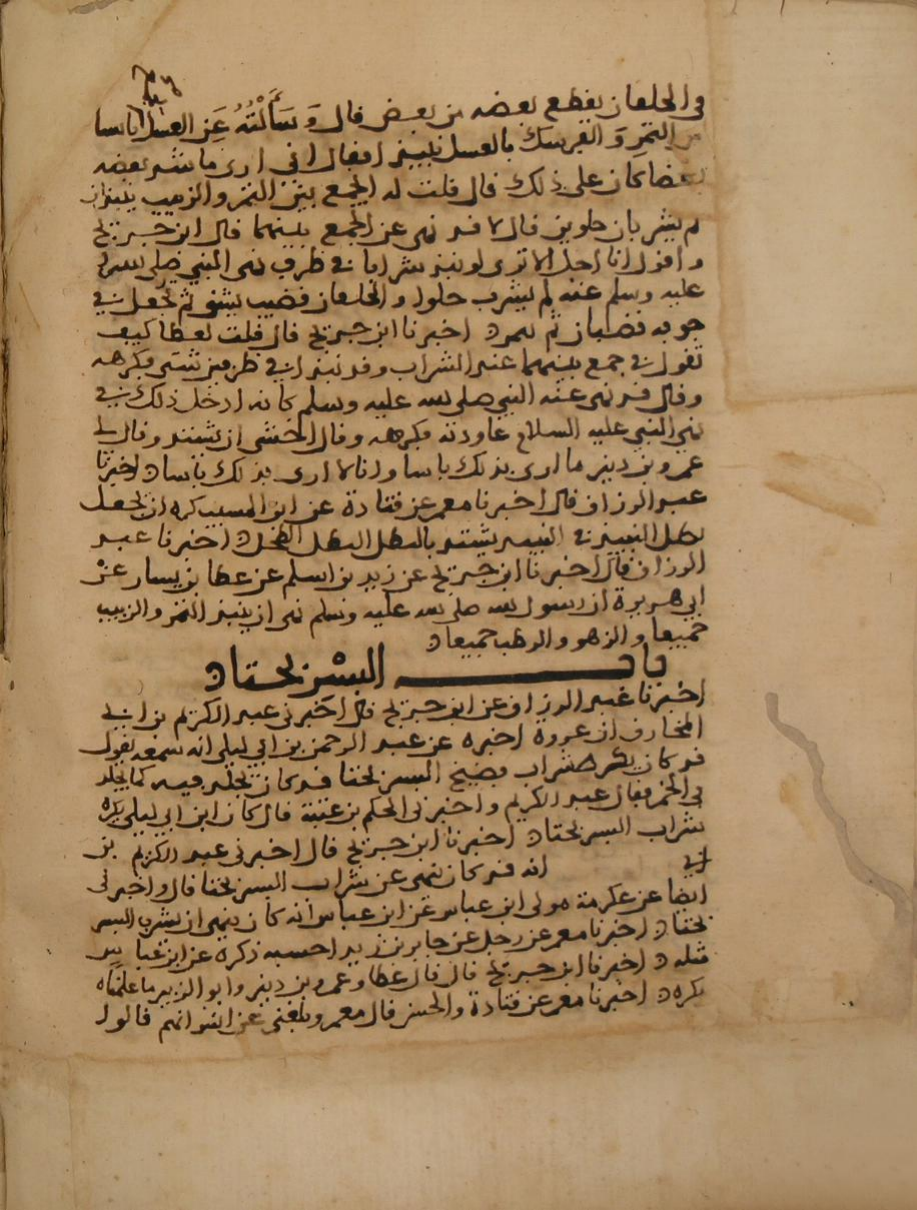 في الحلقان يقطع بعضه من بعض قال وَسَأَلْتُهُ عَنِ العسل
من التمر و الفرسك بالعسل ينبذ افقال اني ارى ما شد بعضه
بعضا كان على ذلك قال قلت له الجمع بين التمر والزبيب ينبذان
ثم يشربان حلوين قال لا قد نهى عن الجمع بينهما قال ابن جريج
واقول انا اجل الا ترى لو نبذ شرابا في ظرف نهى النبي صلى الله
عليه وسلم عنه لم يشرب حلوا و الحلقان قضيب يشق ثم يجعل في
جوبه قضبان ثم اخبرنا ابن جريج قال قلت لعطا كيف
تقول في جمع بينهما عند الشراب وقد نبذا في ظرفين شتى فكرهه
وقال قد نهى عنه النبي صلى الله عليه وسلم كانه ادخل ذلك في
نهي النبي عليه السلام عاودته فكرهه وقال اخشى ان يشتد وقال لي
عمرو بن دينر ما ارى بذلك باسا وانا لا ارى بذلك باسا اخبرنا
عبد الرزاق قال اخبرنا معمر عن قتادة عن ابن المسيب كره ان يجعل
نطل النبيذ في النبيذ يشتد بالنطل النطل الطحل اخبرنا عبد
الرزاق قال اخبرنا ابن جريج عن زيد بن اسلم عن عطا بن يسار عن
ابي هريرة ان رسول الله صلى الله عليه وسلم نهى ان ينبذ التمر والزبيب
جميعا والزهو والرطب جميعا
باب البسر بحتا
اخبرنا عبد الرزاق عن ابن جريج قال اخبرني عبد الكريم بن ابي
المخارق ان عروة اخبره عن عبد الرحمن بن ابي ليلى انه سمعه يقول
قد كان يكره شراب فضيخ البسر بحتا قد كان يجلد فيه كما يجلد
في الخمر فقال عبد الكريم واخبرني الحكم بن عتيبة قال كان ابن ابي ليلى يكره
شراب البسر بحتا اخبرنا ابن جريج قال اخبرني عبد الكريم بن
ابي انه قد كان نهى عن شراب البسر بحتا قال واخبرني
ايضا عن عكرمة مولى ابن عباس عن ابن عباس انه كان ينهى ان يشرب البسر
بحتا اخبرنا معمر عن رجل عن جابر بن زيد احسبه ذكره عن ابن عباس
مثله اخبرنا ابن جريج قال قال عطا وعمرو بن دينر وابو الزبير ما علمناه
يكره اخبرنا معمر عن قتادة والحسن قال معمر وبلغني عن انس انهم قالوا